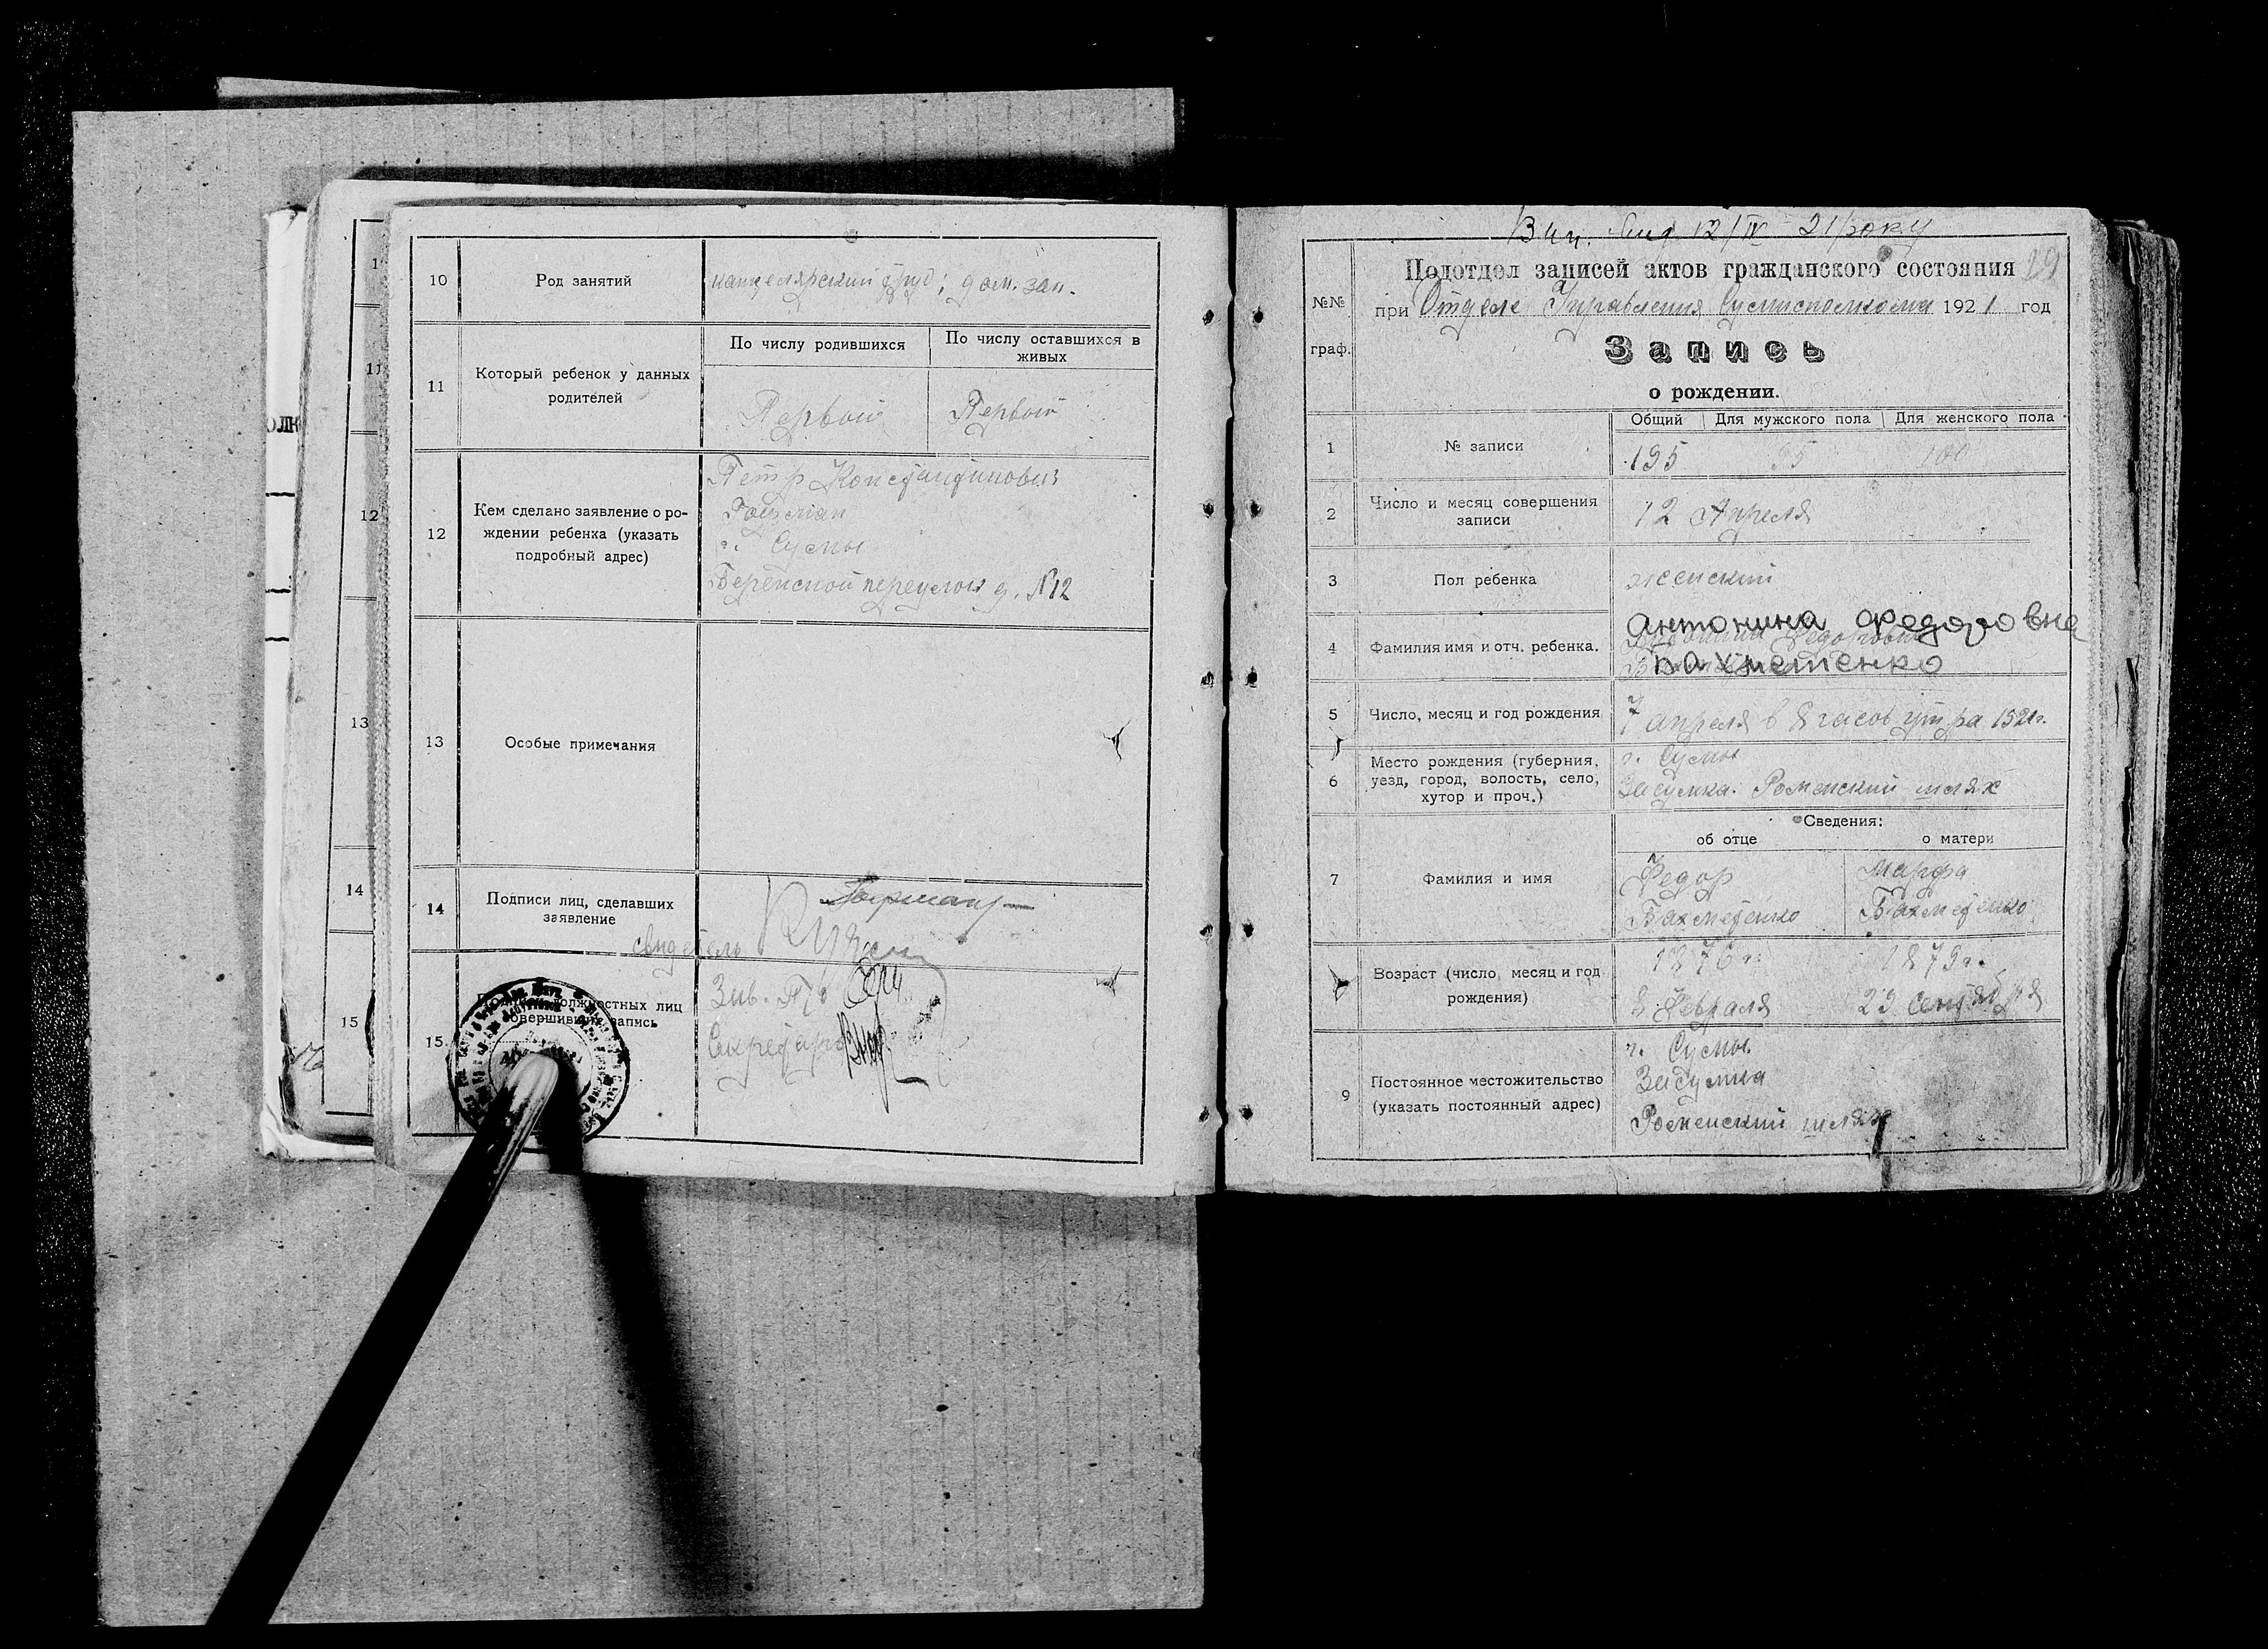 10
Род занятий
канцелярский труд; дом. зан.
11
Который ребенок у данных
родителей
По числу родившихся
По числу оставшихся в
живых
Первый
Первый
12
Кем сделано заявление о ро-
ждении ребенка (указать
подробный адрес)
Петр Константинович
г. Сумы
переулок д. №12
13
Особые примечания
14
Подписи лиц, сделавших
заявление
свидетель
15.
должностных лиц
совершивших запись
Зав. П/о
Секретарь
1
11
12
13
14
15
12/IV 21 року
29
№№
граф.
Подотдел записей актов гражданского состояния
при Отделе Управления Сумисполкома 1921 год
Запись
о рождении.
1
№ записи
Общий
Для мужского пола
Для женского пола
195
95
100
2
Число и месяц совершения
записи
12 Апреля
3
Пол ребенка
женский
4
Фамилия имя и отч. ребенка.
Антонина Федоровна
Бахметенко
5
Число, месяц и год рождения
7 апреля в 8 часов утра 1921г.
6
Место рождения (губерния,
уезд, город, волость, село,
хутор и проч.)
г. Сумы
Засумка. Роменский шлях
Сведения:
об отце
о матери
7
Фамилия и имя
Федор
Бахметенко
Марфа
Бахметенко
Возраст (число, месяц и год
рождения)
1876 г.
8 Февраля
1879 г.
23 сентября
9
Постоянное местожительство
(указать постоянный адрес)
г. Сумы
Засумка
Роменский шлях